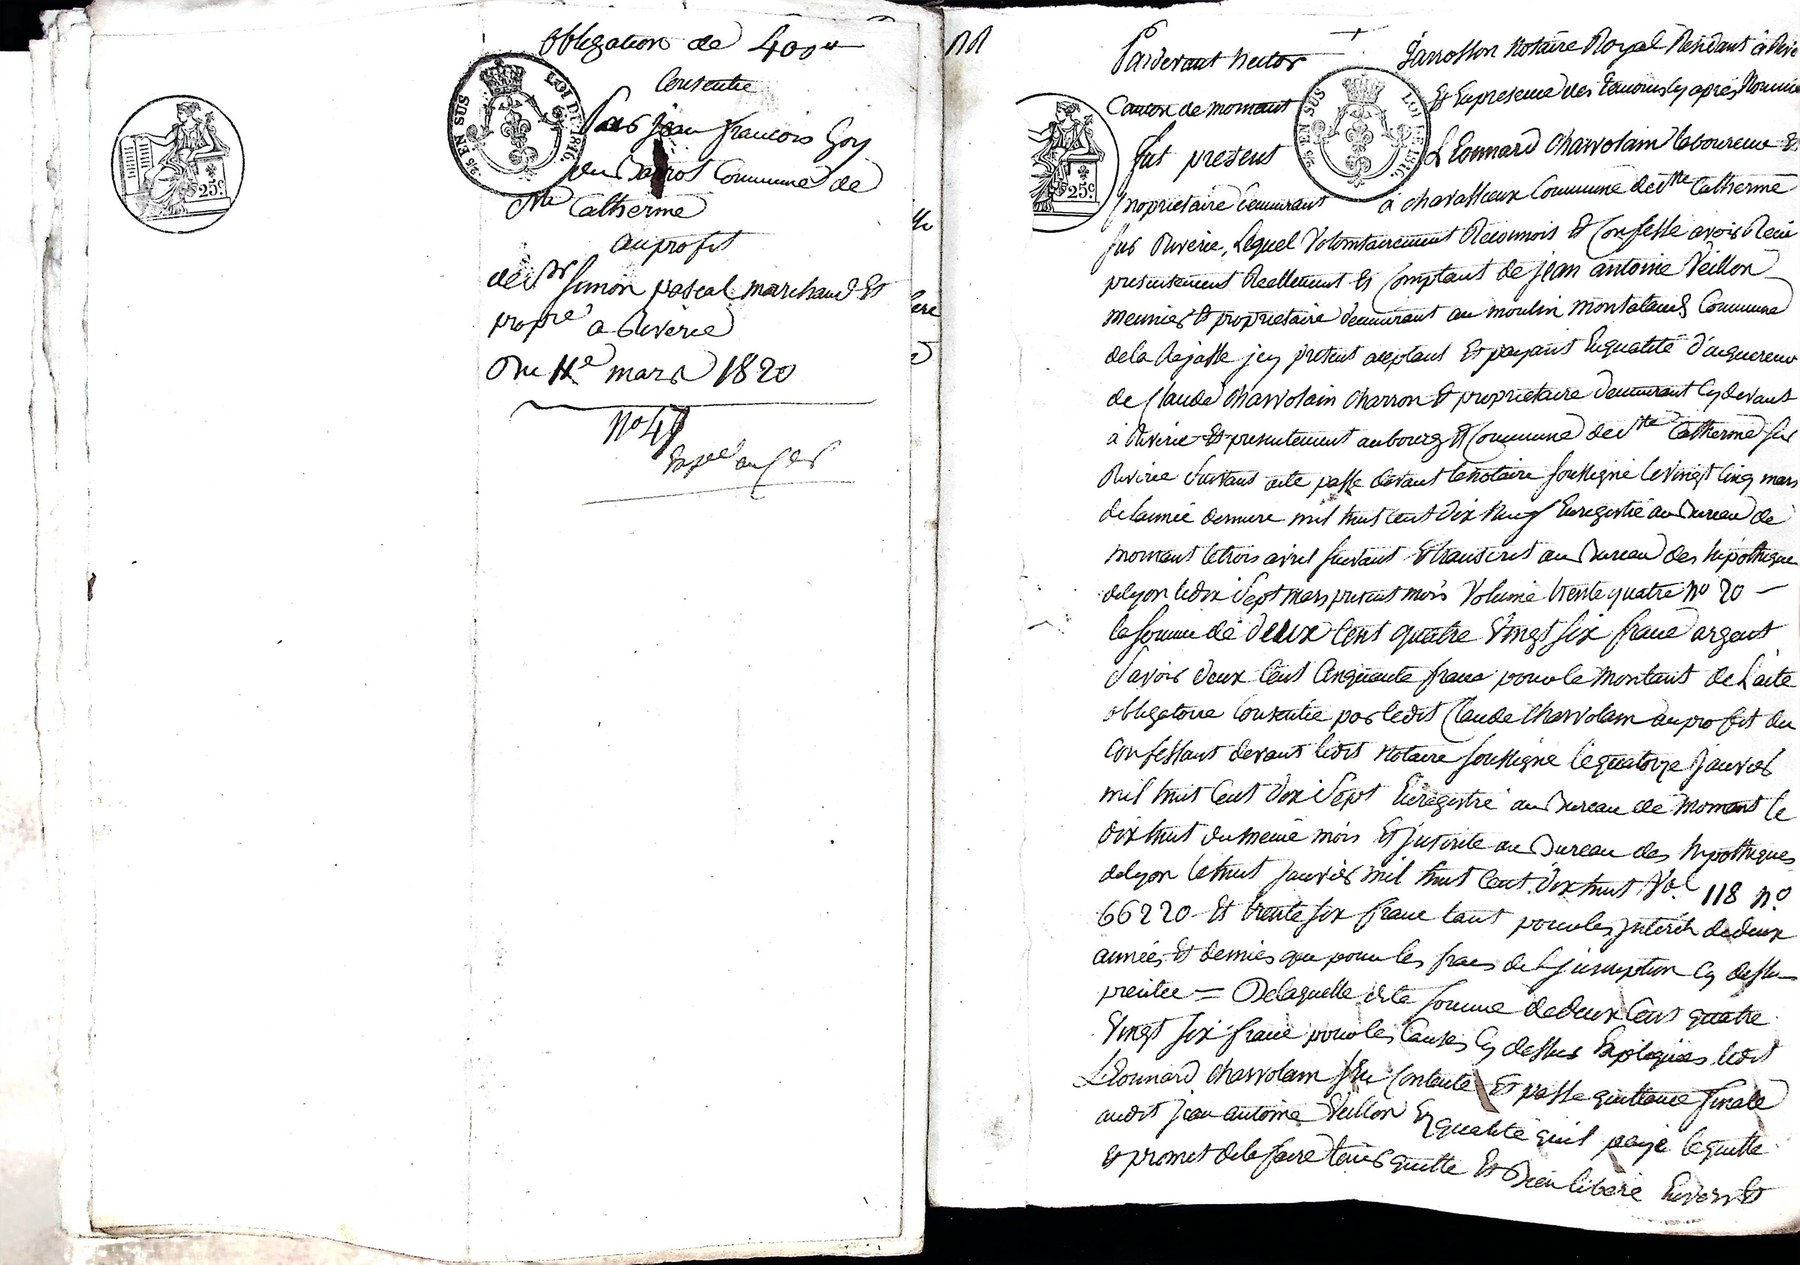 obligation de 400 #
Consentie
Par jean francois Goy
du Barrot Commune de
Ste Catherine
au profit
de Sr Simon pascal marchand Et
propre a Riverie
Du 11e mars 1820
No 47
25 EN SUS
LOI DE 1816.
25c.
Pardevant hector
Notaire Royal Residant à Rive
Canton de mornant
Et En presence des temoins Cy apres Nommés
25 EN SUS
LOI DE 1816.
25c.
fut present
LEonnard Charvolain laboureur Et
proprietaire demeurant à Chavasseux Commune de Ste Catherine
sur Riverie, Lequel Volontairement Reconnois Et Confesse avoir Recu
presentement Reellement Et Comptant de jean antoine Veillon
meunier Et proprietaire demeurant au moulin montaland Commune
de la Rajasse jcy present aceptant Et payant En qualité d'aquereur
de Claude Charvolain Charron Et proprietaire demeurant Cy devant
à Riverie Et presentement au bourg Et Commune de Ste Catherine sur
Riverie Suivant acte passé devant le notaire soussigné le vingt Cinq mars
de l'année derniere mil huit Cent Dix Neuf Enregistré au Bureau de
mornant le trois avril suivant Et transcrit au Bureau des hipotheque
de Lyon le dix Sept mars present mois Volume trente quatre No 20 —
la somme de deux Cent quatre Vingt Six franc argent
Savoir deux Cent Cinquante franc pour le montant de L'acte
obligatoire Consentie par ledit Claude Charvolain au profit du
Confessant devant ledit Notaire soussigné le quatorze janvier
mil huit Cent dix Sept Enregistré au Bureau de Mornant le
dix huit du même mois Et jnscrite au Bureau des hypotheques
de Lyon le huit janvier mil huit Cent dix huit Vol. 118 no.
66220 Et trente six franc tant pour les jnterêt de deux
années Et demies que pour les frais de L'jnscription Cy dessus
= De laquelle dite somme de deux Cent quatre
Vingt six franc pour les Causes Cy dessus Expliquées ledit
LEonnard Charvolain Se Contente Et passe quittance finale
audit jean antoine Veillon En qualité qu'il paye le quitte
Et promet de le faire tenir quitte Et Bien libéré Envers Et